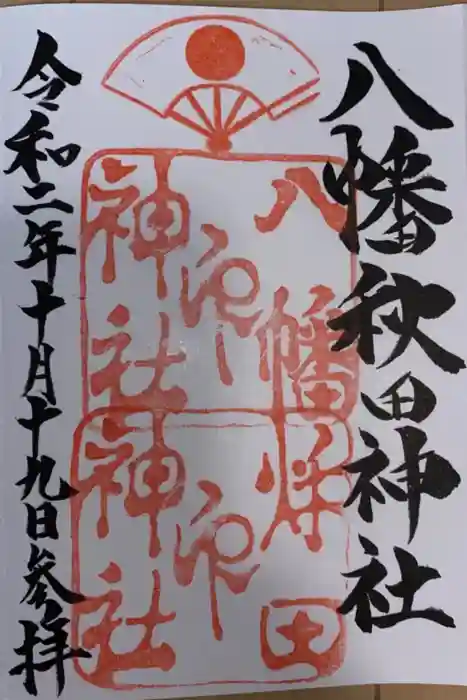 八幡秋田神社
八幡
神社
印
秋田
神社
印
令和二年十月十九日参拝